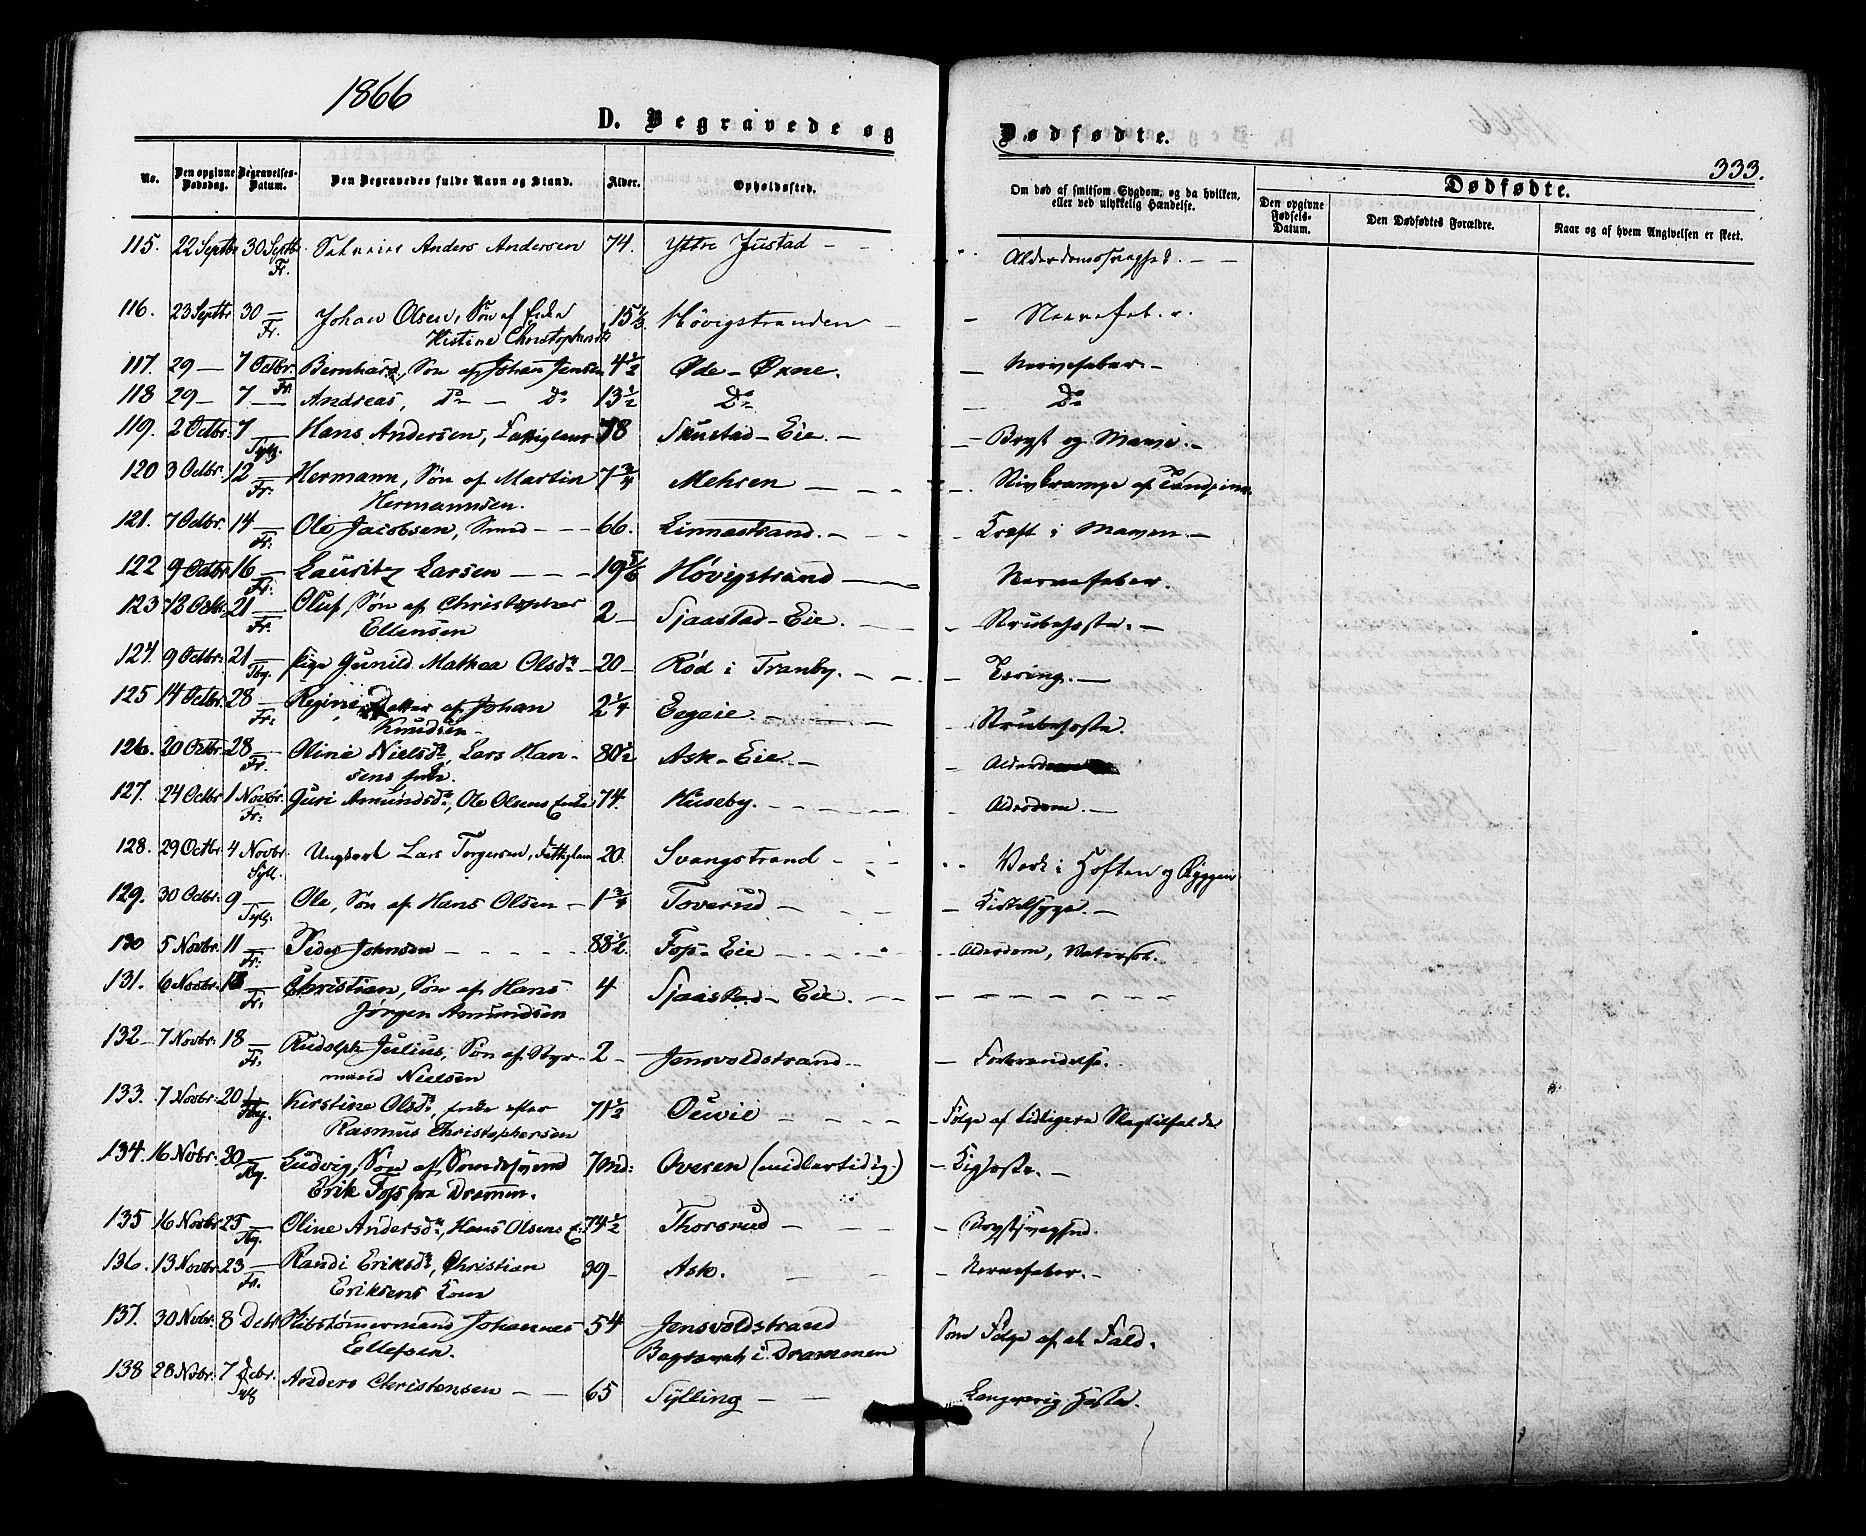 1866
D. Begravede og
Dødfødte.
333.
No.
Den opgivne Dødsdag.
Begravelses-Datum.
Den Begravedes fulde Navn og Stand.
Alder.
Opholdssted.
Om død af smitsom Sygdom, og da hvilken,
eller ved ulykkelig Hændelse.
Dødfødte.
Den opgivne Fødsels-Datum.
Den Dødfødtes Forældre.
Naar og af hvem Angivelsen er skeet.
115. 22 Septbr 30 Septbr Anders Andersen 74. Yttre Justad - - Alderdomssvaghed. - -
Fr.
116. 23 Septbr 30 — Johan Olsen, Søn af Enke 15 1/3 Høvigstranden - - Nervefeber.
Fr. Kistine Christophersd
117. 29 — 7 Octbr. Bernhard, Søn af Johan Jensen 4 1/2 Øde-Øxne. - Nervefeber. -
Fr.
118 29 — 7 — Andreas, Do - Do 13 1/2 Do - Do
119. 2 Octbr. 7 — Hans Andersen, Fattiglem 78 Skustad-Eie. - - Bryst og Mave. -
Syll.
120 3 Octbr. 12 — Hermann, Søn af Martin 7 3/4 Mehren - - - -
Fr. Hermannsen.
121. 7 Octbr. 14 — Ole Jacobsen, Smed - - - 66. Linnestrand. - - - Kræft i Maven. -
Fr.
122 9 Octbr 16 — Lauritz Larsen - - - 19 5/6 Høvigstrand - Nervefeber.
Fr.
123 12 Octbr. 21 — Oluf, Søn af Christopher 2 - Sjaastad-Eie. - - Strubehoste. -
Fr. Ellensen
124. 9 Octbr. 21 — pige Gunild Mathea Olsdr 20 - Rød i Tranby. - - Tæring. -
Tbg.
125 14 Octbr. 28 — Regine, Datter af Johan 2 1/4 Eegeie. - - Strubehoste.
Fr. Knudsen -
126. 20 Octbr. 28 — Oline Nielsdr, Lars Han- 80 1/2 Ask-Eie. - - Alderdom
Fr. sens Enke.
127. 24 Octbr 1 Novbr. Guri Amundsdr, Ole Olsens Enke 74. Huseby. - - - Alderdom. -
Fr.
128. 29 Octbr 4 Novbr. Ungkarl Lars Torgersen, Fattiglem 20. Svangstrand - - - Værk i Hoften og Ryggen
Syll.
129. 30 Octbr. 9 — Ole, Søn af Hans Olsen - 1 3/4 Toverud - - - Kirtelsyge. -
Syll.
130 5 Novbr. 11 — Peder Johnsen - - - - 88 1/2 Foss-Eie - - - Alderdom, Vatersot.
Fr.
131. 6 Novbr. 18 — Christian, Søn af Hans 4 Sjaastad-Eie. - - - - - - - -
Fr. Jørgen Amundsen
132 - 7 Novbr. 18 — Rudolph Julius, Søn af Styr- 2 - Jensvoldstrand - - Forbrændelse.
Fr. mand Nielsen
133. 7 Novbr. 20 — Kirstine Olsdr, Enke efter 71 1/2 Ouvie - - - Følge af tidligere Slagtilfælde
Tbg. Rasmus Christophersen
134. 16 Novbr. 20 — Ludvig, Søn af Smedsvend 7 Md: Overen (midlertidig.) - Kighoste. -
Tbg. Erik Foss fra Drammen.
135 16 Novbr. 25 — Oline Andersdr, Hans Olsens E. 74 1/2 Thorsrud - - - Brystsvaghed.
Tbg.
136. 13 Novbr. 23 — Randi Eriksdr, Christian 39 - Ask. - - - Nervefeber. -
Fr. Eriksens Kone
137. 30 Novbr. 8 Debr Skibstømmermand Johannes 54 Jensvoldstrand Som Følge af et Fald.
Ellefsen. Bagravet i Drammen
138 28 Novbr. 7 Debr. Anders Christensen - - 65 Sylling - - Langvarig Hoste.
Syll